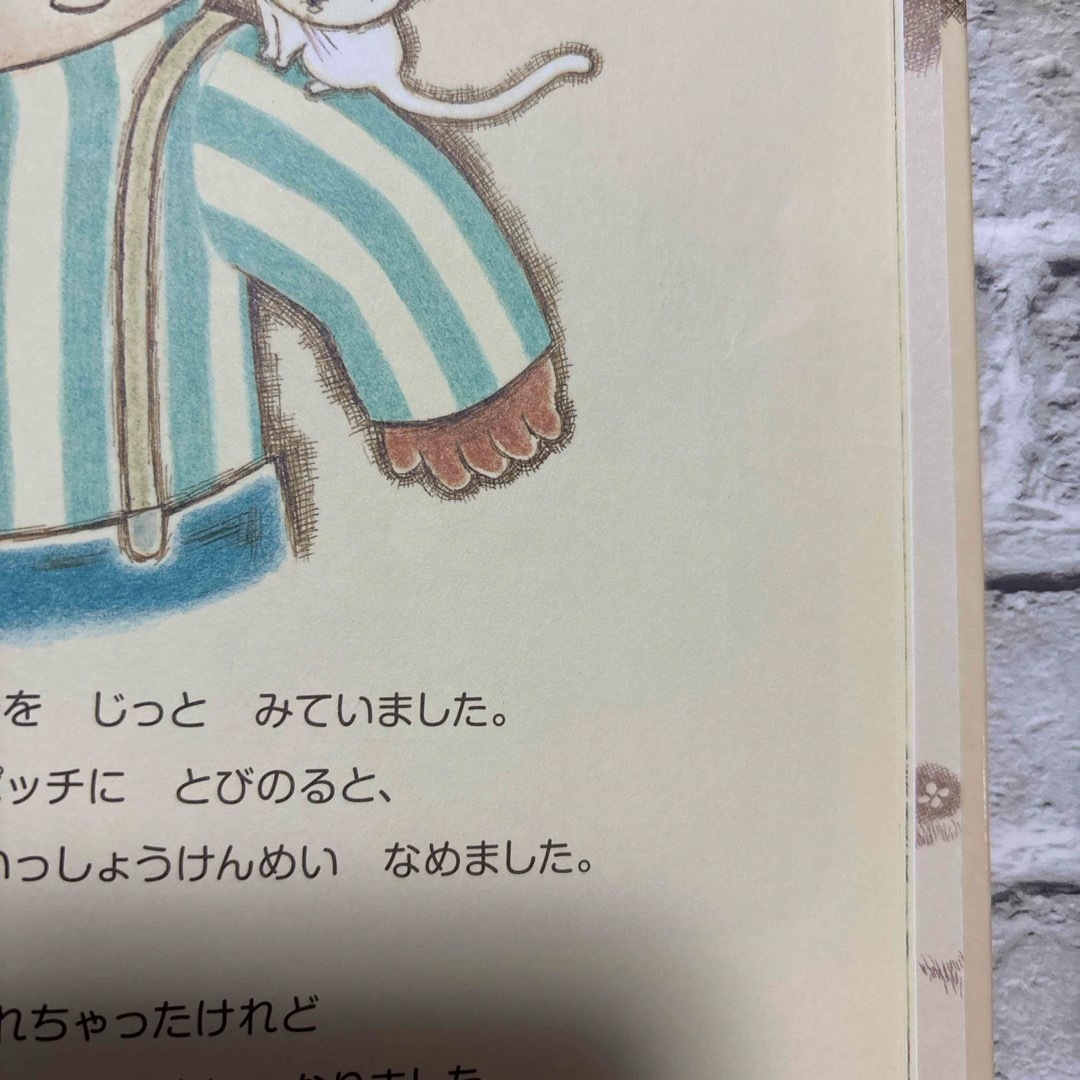 を　じっと　みていました。
ッチに　とびのると、
いっしょうけんめい　なめました。
れちゃったけれど
なりました